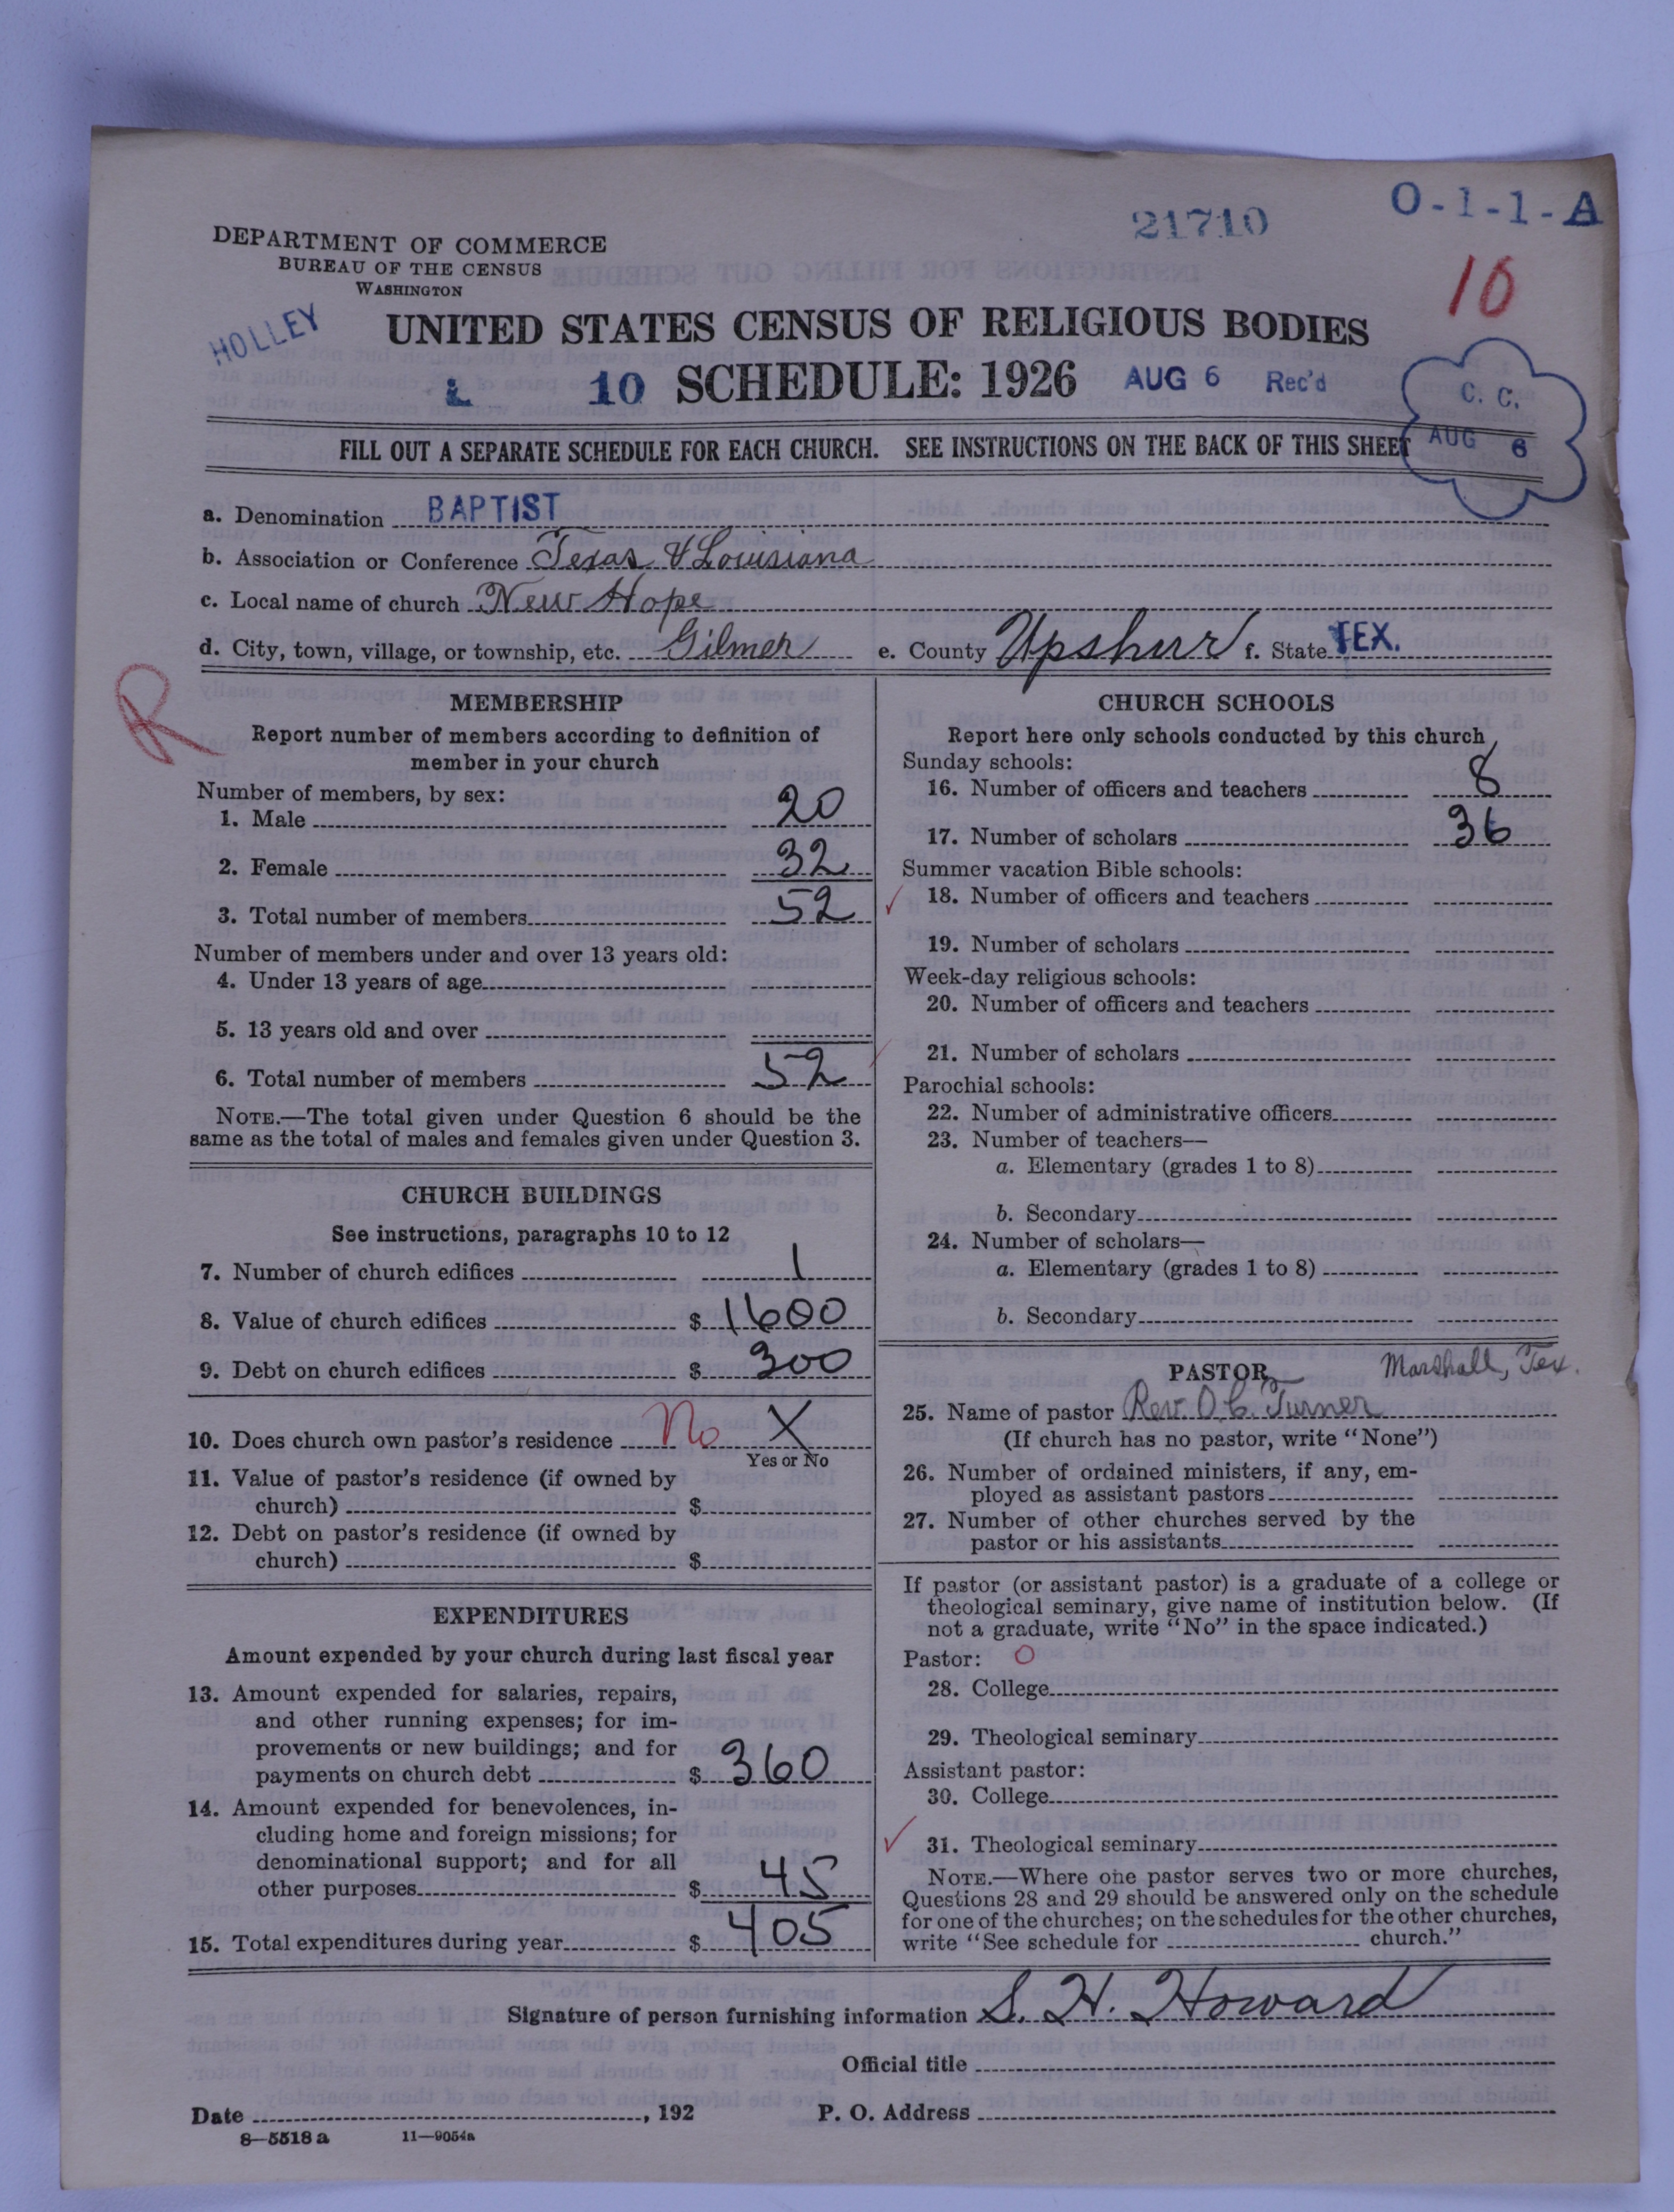 21710
O-1-1-A
DEPARTMENT OF COMMERCE
BUREAU OF THE CENSUS
WASHINGTON
10
HOLLEY
UNITED STATES CENSUS OF RELIGIOUS BODIES
L 10 SCHEDULE: 1926 AUG 6 Rec'd
C. C.
AUG 6
FILL OUT A SEPARATE SCHEDULE FOR EACH CHURCH. SEE INSTRUCTIONS ON THE BACK OF THIS SHEET
a. Denomination BAPTIST
b. Association or Conference Texas & Louisiana
c. Local name of church New Hope
d. City, town, village, or township, etc. Gilmer e. County Upshur f. State TEX.
R
MEMBERSHIP
Report number of members according to definition of
member in your church
Number of members, by sex:
1. Male 20
2. Female 32
3. Total number of members 52
Number of members under and over 13 years old:
4. Under 13 years of age
5. 13 years old and over
6. Total number of members 52
NOTE.—The total given under Question 6 should be the
same as the total of males and females given under Question 3.
CHURCH BUILDINGS
See instructions, paragraphs 10 to 12
7. Number of church edifices 1
8. Value of church edifices $ 1600
9. Debt on church edifices $ 300
10. Does church own pastor's residence No X
Yes or No
11. Value of pastor's residence (if owned by
church) $
12. Debt on pastor's residence (if owned by
church) $
EXPENDITURES
Amount expended by your church during last fiscal year
13. Amount expended for salaries, repairs,
and other running expenses; for im-
provements or new buildings; and for
payments on church debt $ 360
14. Amount expended for benevolences, in-
cluding home and foreign missions; for
denominational support; and for all
other purposes $ 45
15. Total expenditures during year $ 405
CHURCH SCHOOLS
Report here only schools conducted by this church
Sunday schools:
16. Number of officers and teachers 8
17. Number of scholars 36
Summer vacation Bible schools:
18. Number of officers and teachers
19. Number of scholars
Week-day religious schools:
20. Number of officers and teachers
21. Number of scholars
Parochial schools:
22. Number of administrative officers
23. Number of teachers—
a. Elementary (grades 1 to 8)
b. Secondary
24. Number of scholars—
a. Elementary (grades 1 to 8)
b. Secondary
PASTOR Marshall, Tex.
25. Name of pastor Rev. O. C. Turner
(If church has no pastor, write "None")
26. Number of ordained ministers, if any, em-
ployed as assistant pastors
27. Number of other churches served by the
pastor or his assistants
If pastor (or assistant pastor) is a graduate of a college or
theological seminary, give name of institution below. (If
not a graduate, write "No" in the space indicated.)
Pastor: O
28. College
29. Theological seminary
Assistant pastor:
30. College
31. Theological seminary
NOTE.—Where one pastor serves two or more churches,
Questions 28 and 29 should be answered only on the schedule
for one of the churches; on the schedules for the other churches,
write "See schedule for church."
Signature of person furnishing information S. H. Howard
Official title
Date , 192 P. O. Address
8—5518 a 11—9054a